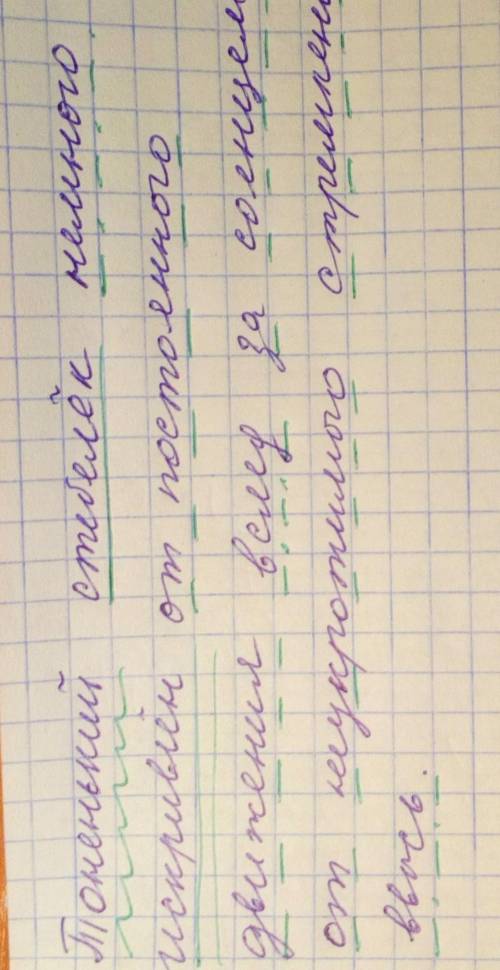 Тоненький стебелёк немного
искривлён от постоянного
движения вслед за солнцем
от неукротимого стремлен
ввысь.